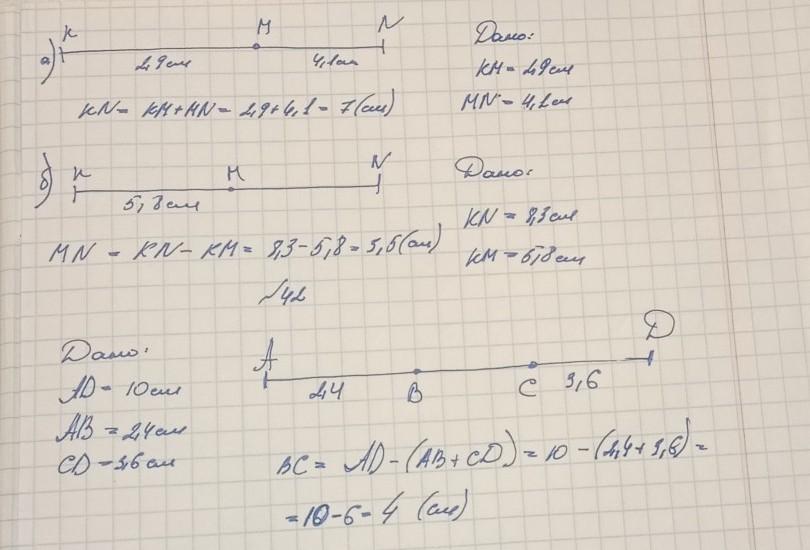 а) K M N
2,9см 4,1см
Дано:
KM = 2,9см
MN = 4,1см
KN = KM+MN = 2,9+4,1 = 7(см)
б) K M N
5,8см
Дано:
KN = 9,3см
KM = 5,8см
MN = KN - KM = 9,3-5,8 = 3,5(см)
№42
Дано:
AD = 10см
AB = 2,4см
CD = 3,6см
A B C D
2,4 3,6
BC = AD - (AB + CD) = 10 - (2,4+3,6) =
= 10-6 = 4 (см)